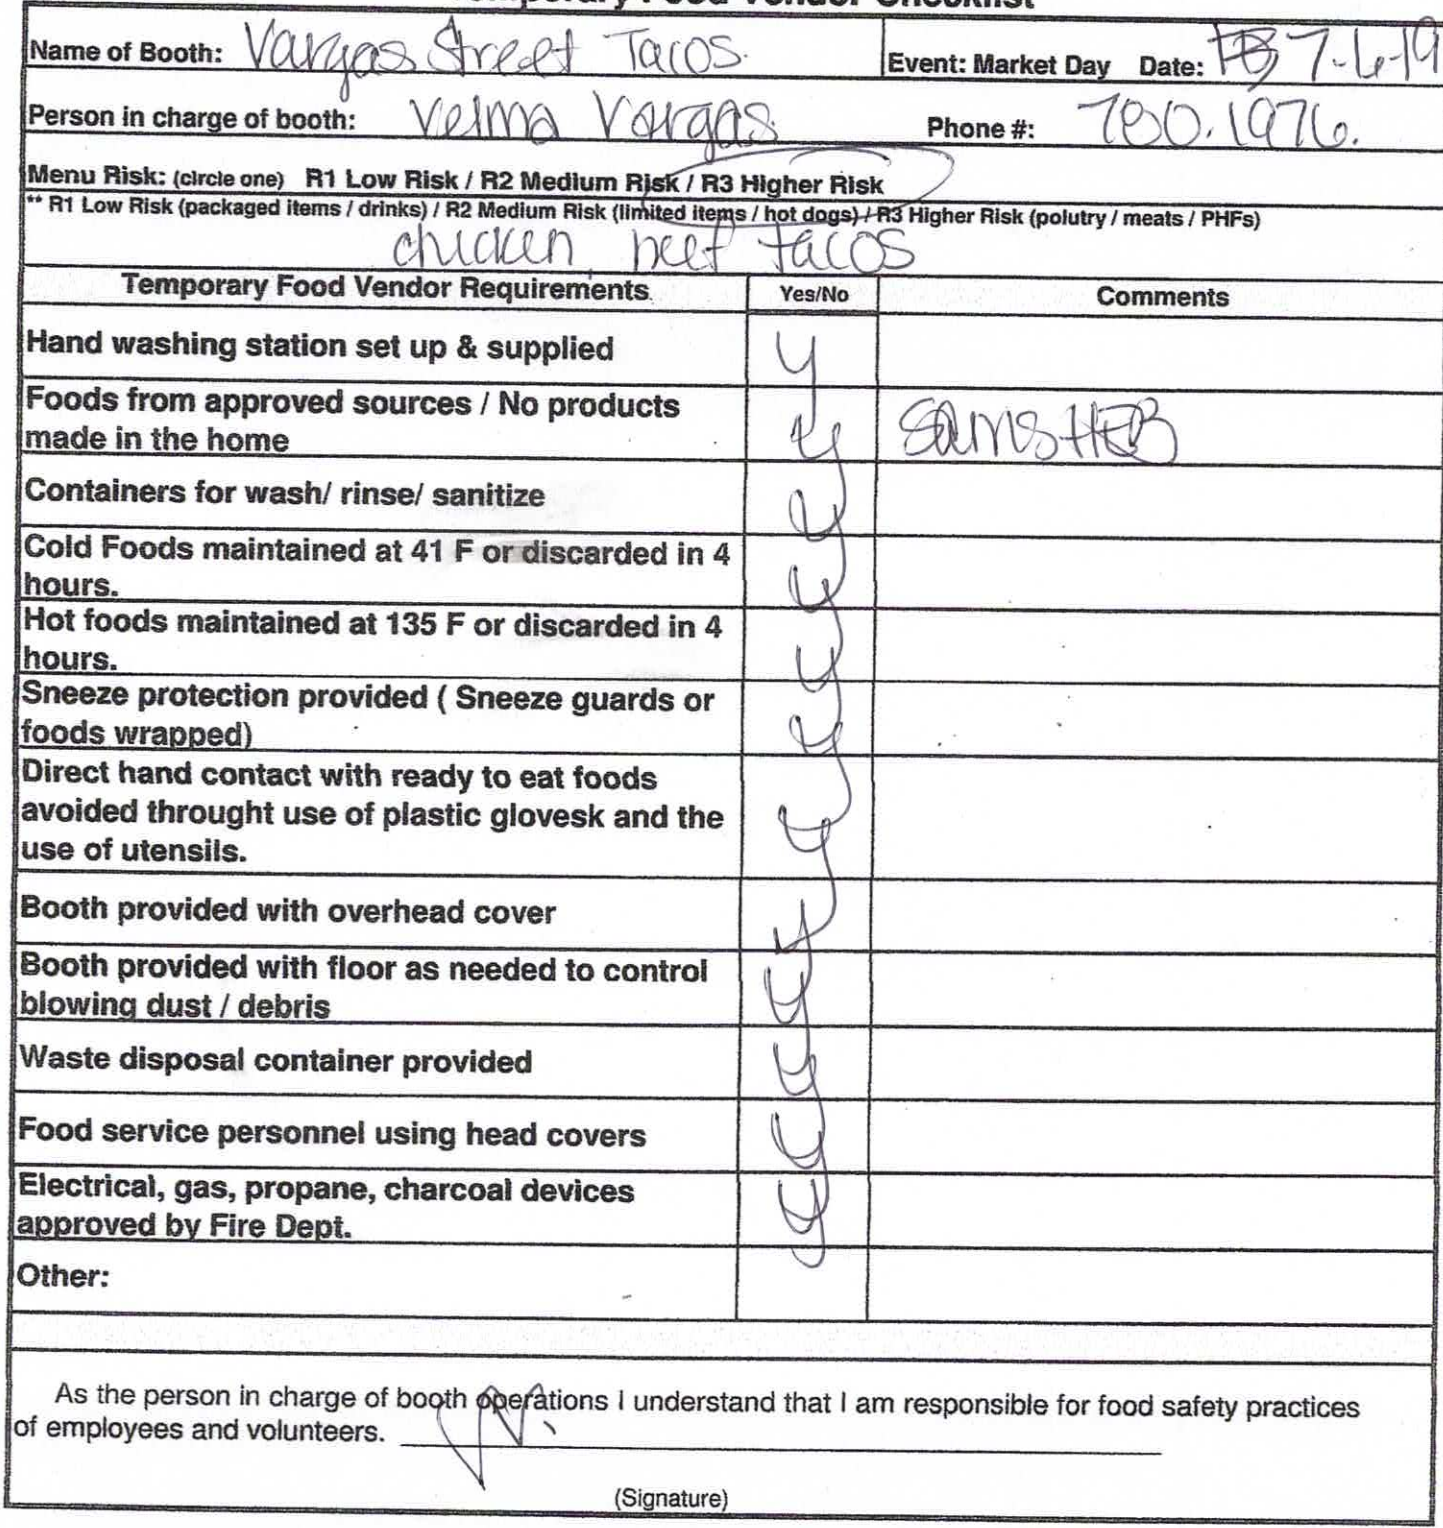 Temporary Food Vendor Checklist
Name of Booth: Vargas Street Tacos. Event: Market Day Date: 7-6-19
Person in charge of booth: Velma Vargas Phone #: 780.1976.
Menu Risk: (circle one) R1 Low Risk / R2 Medium Risk / R3 Higher Risk
** R1 Low Risk (packaged items / drinks) / R2 Medium Risk (limited items / hot dogs) / R3 Higher Risk (polutry / meats / PHFs)
chicken, beef tacos
Temporary Food Vendor Requirements Yes/No Comments
Hand washing station set up & supplied y
Foods from approved sources / No products
made in the home y Sams HEB
Containers for wash/ rinse/ sanitize y
Cold Foods maintained at 41 F or discarded in 4
hours. y
Hot foods maintained at 135 F or discarded in 4
hours. y
Sneeze protection provided ( Sneeze guards or
foods wrapped) y
Direct hand contact with ready to eat foods
avoided throught use of plastic glovesk and the
use of utensils. y
Booth provided with overhead cover y
Booth provided with floor as needed to control
blowing dust / debris y
Waste disposal container provided y
Food service personnel using head covers y
Electrical, gas, propane, charcoal devices
approved by Fire Dept. y
Other:
As the person in charge of booth operations I understand that I am responsible for food safety practices
of employees and volunteers.
(Signature)